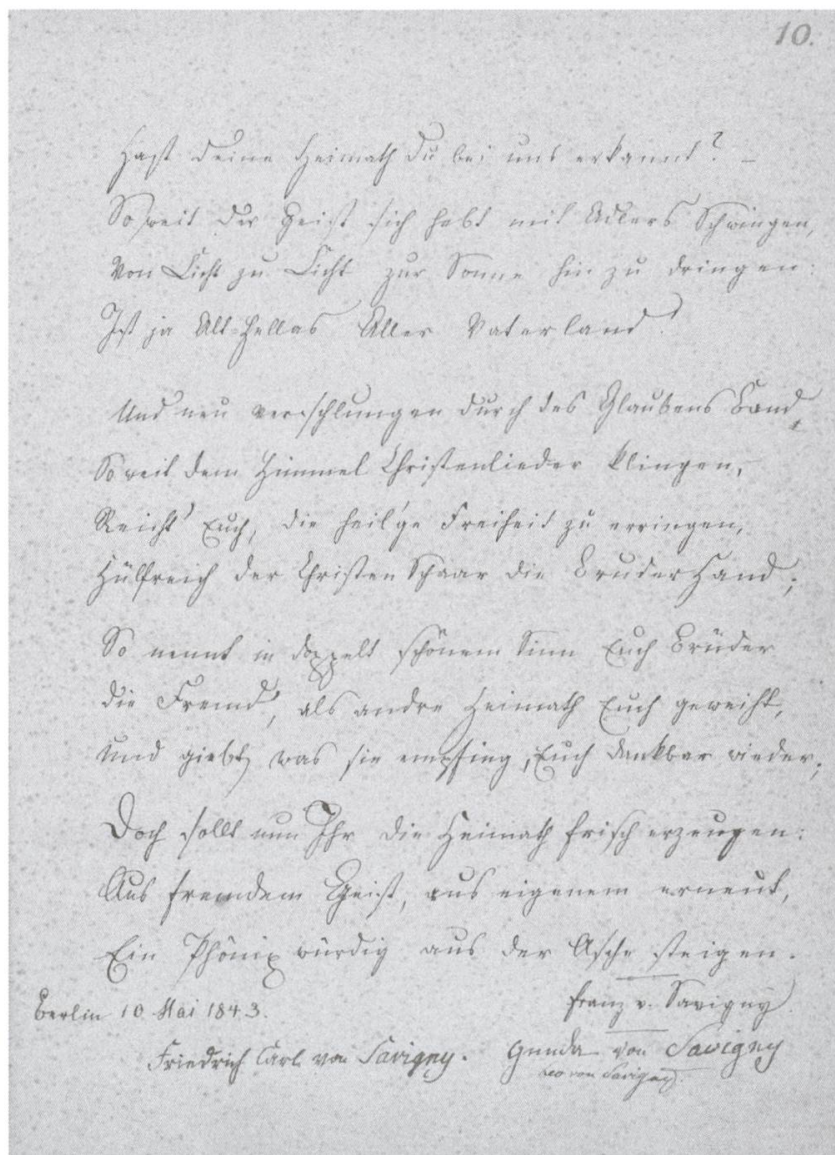 10.
Hast deine Heimath Du bei uns erkannt? –
Soweit der Geist sich hebt mit Adlers Schwingen,
Von Licht zu Licht zur Sonne hin zu dringen:
Ist ja Alt-Hellas Aller Vaterland!
Und neu verschlungen durch des Glaubens Band,
Soweit dem Himmel Christenlieder klingen,
Reicht Euch, die heil'ge Freiheit zu erringen,
Hülfreich der Christen Schaar die Bruderhand;
So nennt in doppelt schönem Sinn Euch Brüder
die Fremd', als andre Heimath Euch geweiht,
Und giebt, was sie empfing, Euch dankbar wieder;
Doch sollt nun Ihr die Heimath frisch erzeugen:
Aus fremdem Geist, aus eigenem erneut,
Ein Phönix würdig aus der Asche steigen.
Berlin 10 Mai 1843.
Franz v. Savigny
Friedrich Carl von Savigny. Gunda von Savigny
Leo von Savigny.